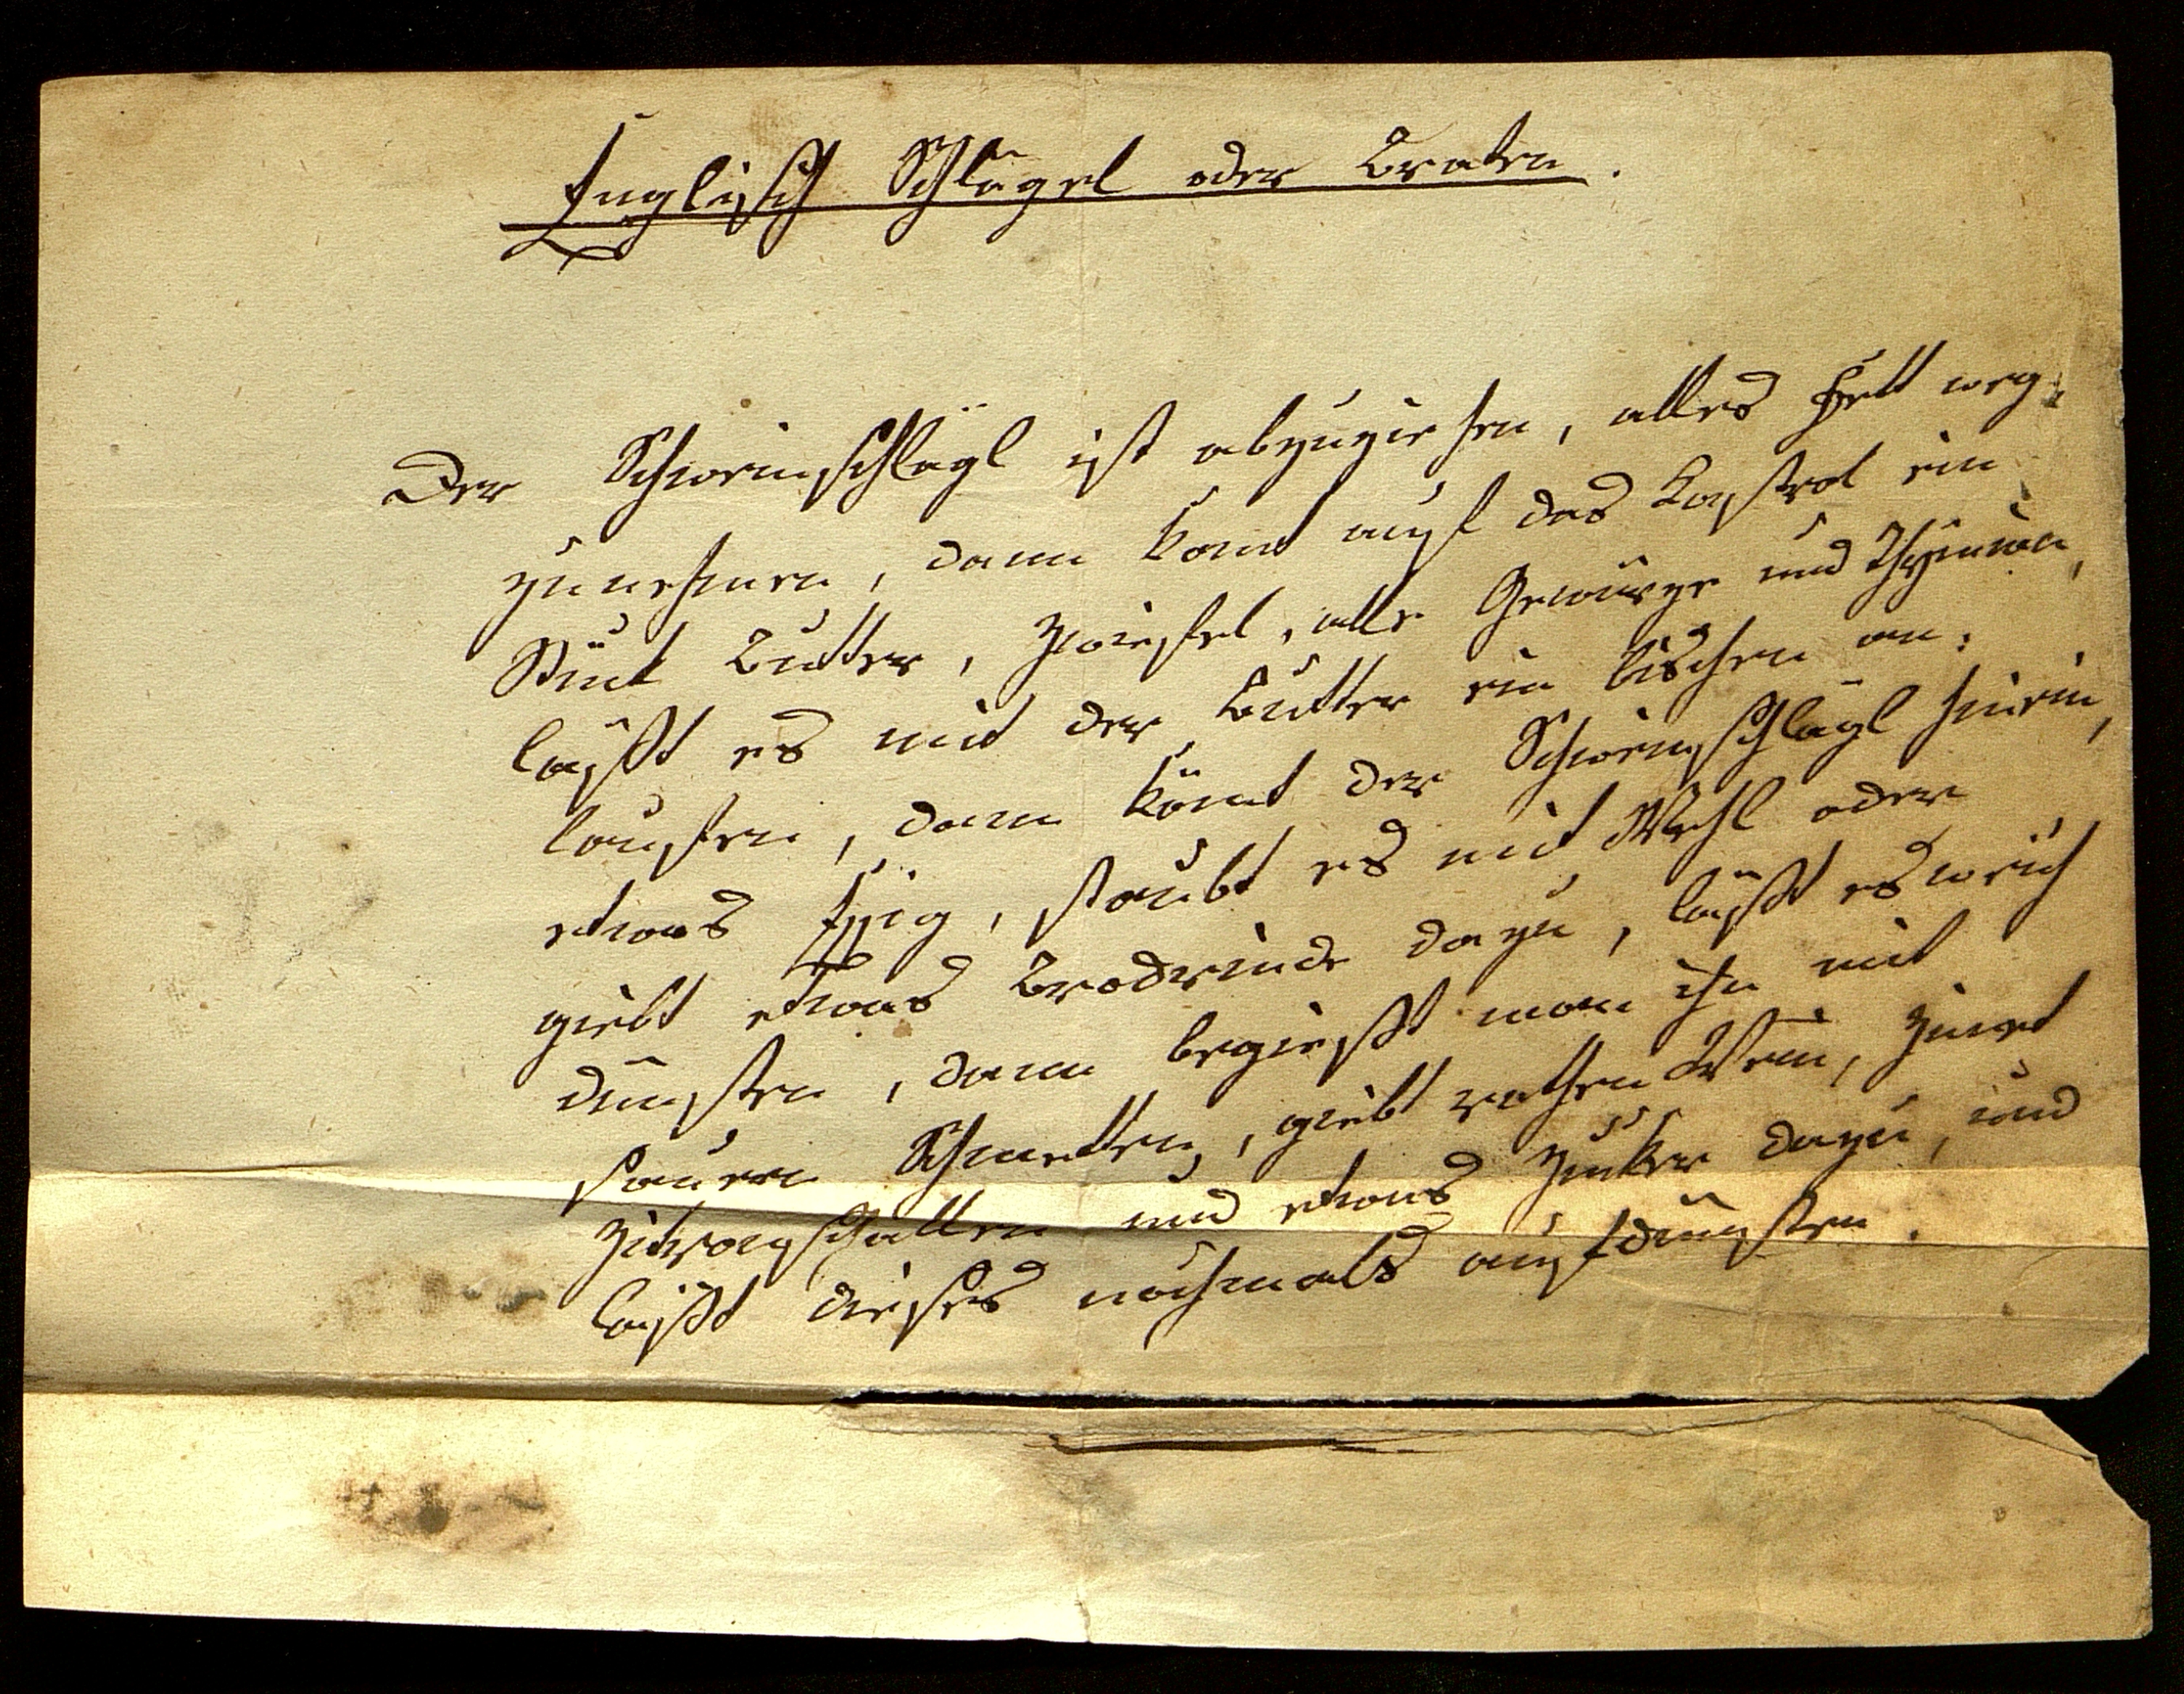 Englisch Schlägel oder Braten.
Der Schweinschlägl ist abzuziehen, alles Fett weg-
zunehmen, dann komt auf das Kastrol ein
Stück Butter, Zwiefel, alle Gewürze und Thymian,
läßt es mit der Butter ein bischen an-
laufen, dann kömt der Schweinschlägl hinein,
etwas Essig, staubt es mit Mehl oder
giebt etwas Brodrinde dazu, läßt es weich
dünsten, dann begießt man ihn mit
sauren Schmetten, giebt rothen Wein, Zimet
Zitronschallen und etwas Zuker dazu, und
läßt dieses nochmals aufdünsten.